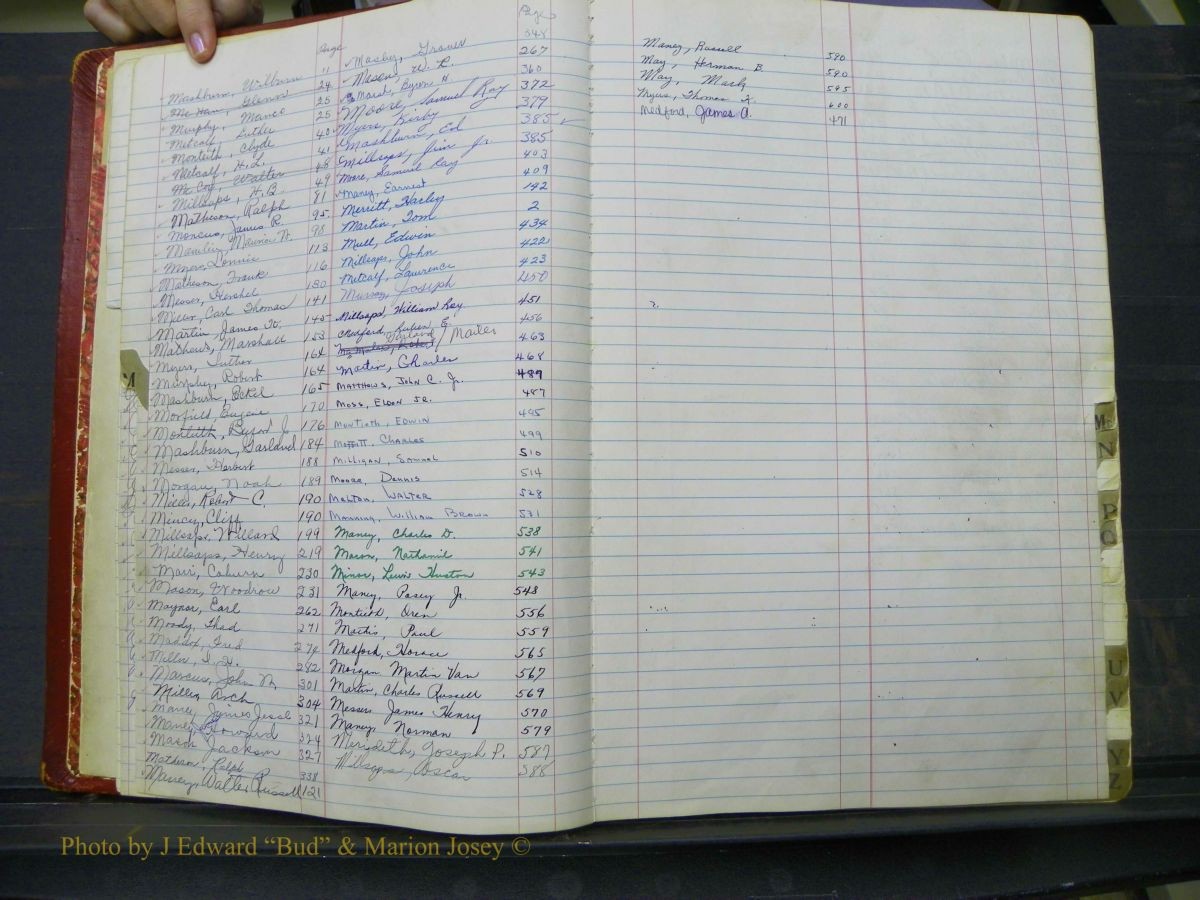 Page
Mashburn, Wilburn 11
Mc Han, Glenn 24
Murphy, Marco 25
Metcalf, Luther 25
Monteith, Clyde 40
Metcalf, H.L. 41
Mc Coy, Walter 48
Millsaps, H.B. 49
Matheson, Ralph 81
Moncus, James R. 95
Maurice H. 98
Myers, Lonnie 113
Matheson, Frank 116
Messer, Hershel 130
Miller, Carl Thomas 141
Martin James W. 145
Mathews, Marshall 153
Myers, Luther 164
Murphy, Robert 164
Mashburn, Eckel 165
Morfield, Eugene 170
Monteith, Byron J. 176
Mashburn, Garland 184
Messer, Herbert 188
Morgan, Noah 189
Mices, Robert C. 190
Mincey, Cliff 190
Millsaps, Willard 199
Millsaps, Henry 219
Marr, Coburn 230
Mason, Woodrow 231
Maynor, Earl 262
Moody, Thad 271
Maddox, Fred 274
Miller, 282
Marcus, John M. 301
Miller, Arch 304
Maney, James Jess 321
Maney, Howard 324
Mason Jackson 327
Matheson, Ralph 338
Maney, Walter Russell 121
Page
Mosley, Grover 348
Mason, W. R. 267
Byron H. 360
Moore, Samuel Ray 372
Myers, Kirby 379
Mashburn, Ed 385
Millsaps, Jim Jr. 385
Moore, Samuel Ray 403
Maney, Earnest 409
Merritt, Harley 142
Martin, Tom 2
Mull, Edwin 434
Millsaps, John 422
Metcalf, Lawrence 423
Murray, Joseph 450
Millsaps, William Ray 451
Medford, Reuben E. 456
Mailes 463
Martin, Charles 468
Matthews, John C. Jr. 489
Moss, Eldon Jr. 487
Montieth, Edwin 495
Moffitt, Charles 499
Milligan, Samuel 510
Moore, Dennis 514
Melton, Walter 528
Manning, William Brown 531
Maney, Charles D. 538
Mason, Nathaniel 541
Minor, Lewis Huston 543
Maney, Posey Jr. 548
Montieth, Oren 556
Martis, Paul 559
Medford, Horace 565
Morgan Martin Van 567
Martin, Charles Russell 569
Messer James Henry 570
Maney, Norman 579
Merideth, Joseph P. 587
Millsaps, Oscar 588
Maney, Russell 590
May, Herman B. 590
May, Mack 595
Myers, Thomas K. 600
Medford, James A. 471
M
Mc
N
P
Q
U
V
Y
Z
Photo by J Edward “Bud” & Marion Josey ©